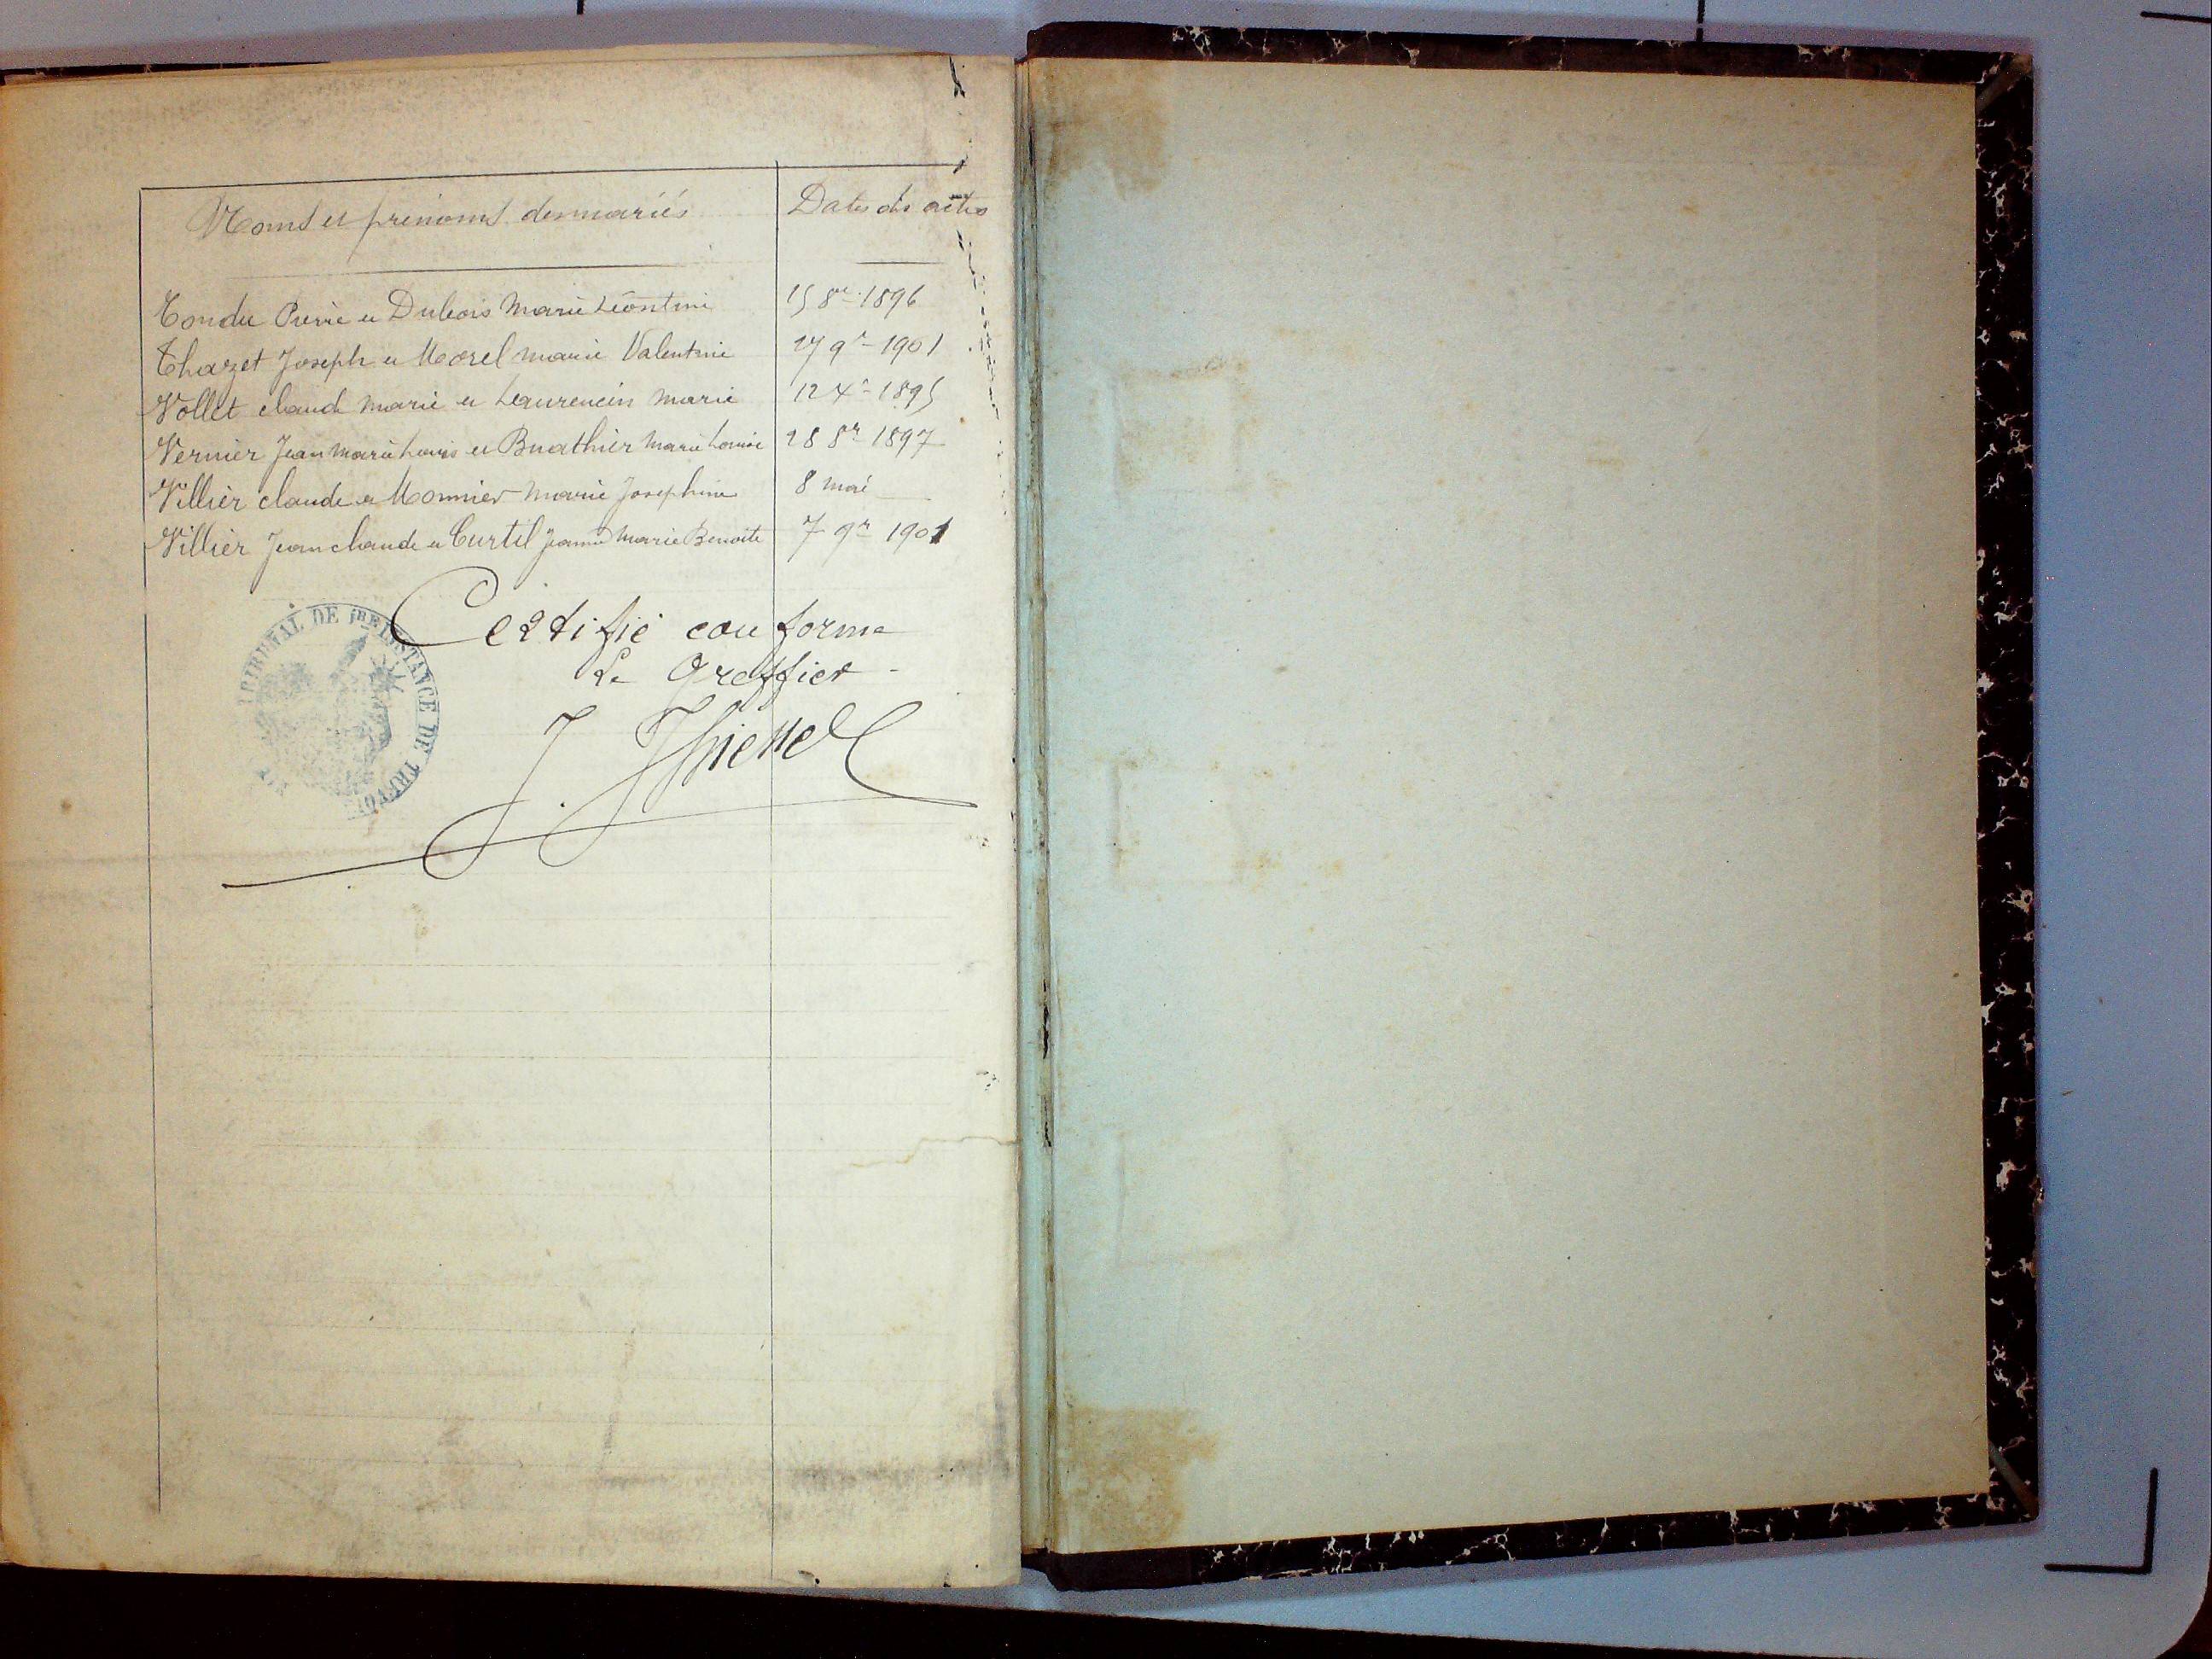 Noms et prénoms des mariés Dates des actes
Tondu Pierre et Dubois Marie Léontine 15 8re 1896
Thazet Joseph et Morel Marie Valentine 27 9r 1901
Vollet Claude Marie et Laurencin Marie 12 Xr 1895
Vernier Jean Marie Louis et Buathier Marie Louise 28 8r 1897
Villier Claude et Monnier Marie Joséphine 8 mai —
Villier Jean Claude et Curtil Jeanne Marie Benoite 7 9r 1901
Certifié conforme
Le Greffier
TRIBUNAL DE 1RE INSTANCE DE TRÉVOUX